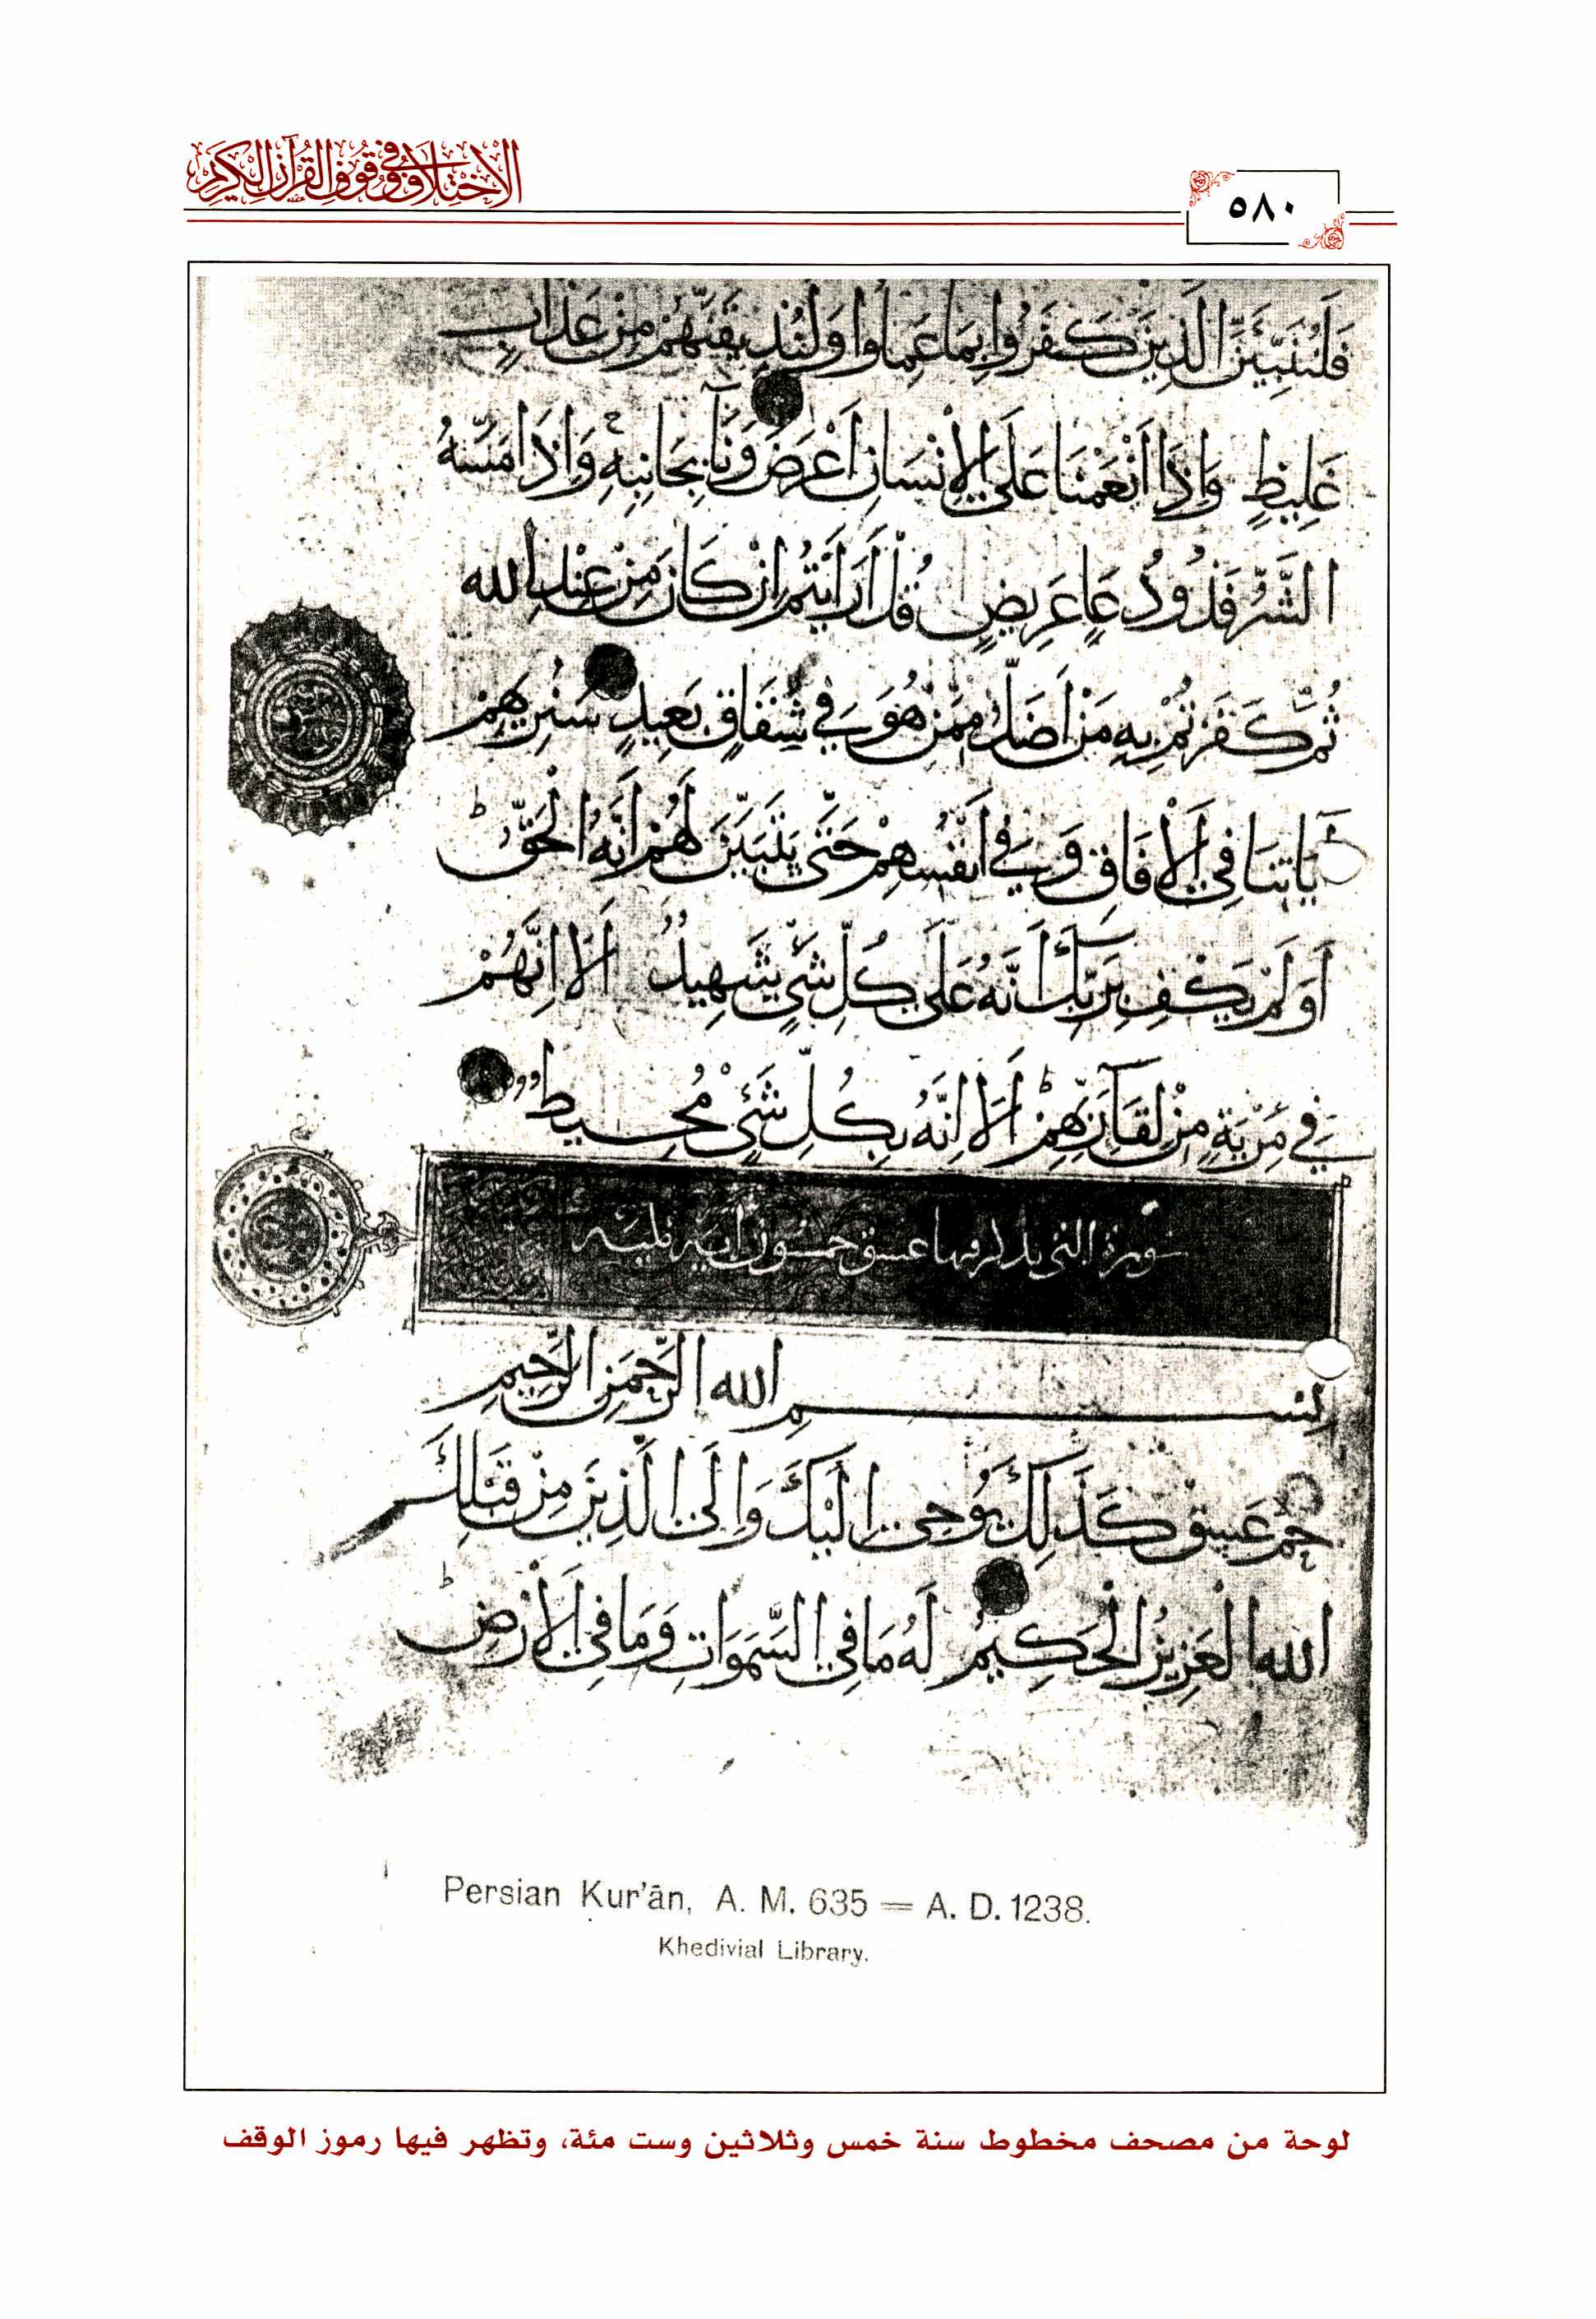 الاختلاف في وقوف القرآن الكريم
٥٨٠
فَلَنُنَبِّئَنَّ الَّذِينَ كَفَرُوا بِمَا عَمِلُوا وَلَنُذِيقَنَّهُمْ مِنْ عَذَابٍ
غَلِيظٍ وَإِذَا أَنْعَمْنَا عَلَى الْإِنْسَانِ أَعْرَضَ وَنَأَى بِجَانِبِهِ وَإِذَا مَسَّهُ
الشَّرُّ فَذُو دُعَاءٍ عَرِيضٍ قُلْ أَرَأَيْتُمْ إِنْ كَانَ مِنْ عِنْدِ اللَّهِ
ثُمَّ كَفَرْتُمْ بِهِ مَنْ أَضَلُّ مِمَّنْ هُوَ فِي شِقَاقٍ بَعِيدٍ سَنُرِيهِمْ
آيَاتِنَا فِي الْآفَاقِ وَفِي أَنْفُسِهِمْ حَتَّى يَتَبَيَّنَ لَهُمْ أَنَّهُ الْحَقُّ ط
أَوَلَمْ يَكْفِ بِرَبِّكَ أَنَّهُ عَلَى كُلِّ شَيْءٍ شَهِيدٌ أَلَا إِنَّهُمْ
فِي مِرْيَةٍ مِنْ لِقَاءِ رَبِّهِمْ ط أَلَا إِنَّهُ بِكُلِّ شَيْءٍ مُحِيطٌ
سورة التي يذكر فيها عسق خمسون آية
بسم الله الرَّحْمَنِ الرَّحِيمِ
حم عسق كَذَلِكَ يُوحِي إِلَيْكَ وَإِلَى الَّذِينَ مِنْ قَبْلِكَ
اللَّهُ الْعَزِيزُ الْحَكِيمُ لَهُ مَا فِي السَّمَوَاتِ وَمَا فِي الْأَرْضِ ط
Persian Kur'ān, A. M. 635 = A. D. 1238.
Khedivial Library.
لوحة من مصحف مخطوط سنة خمس وثلاثين وست مئة، وتظهر فيها رموز الوقف